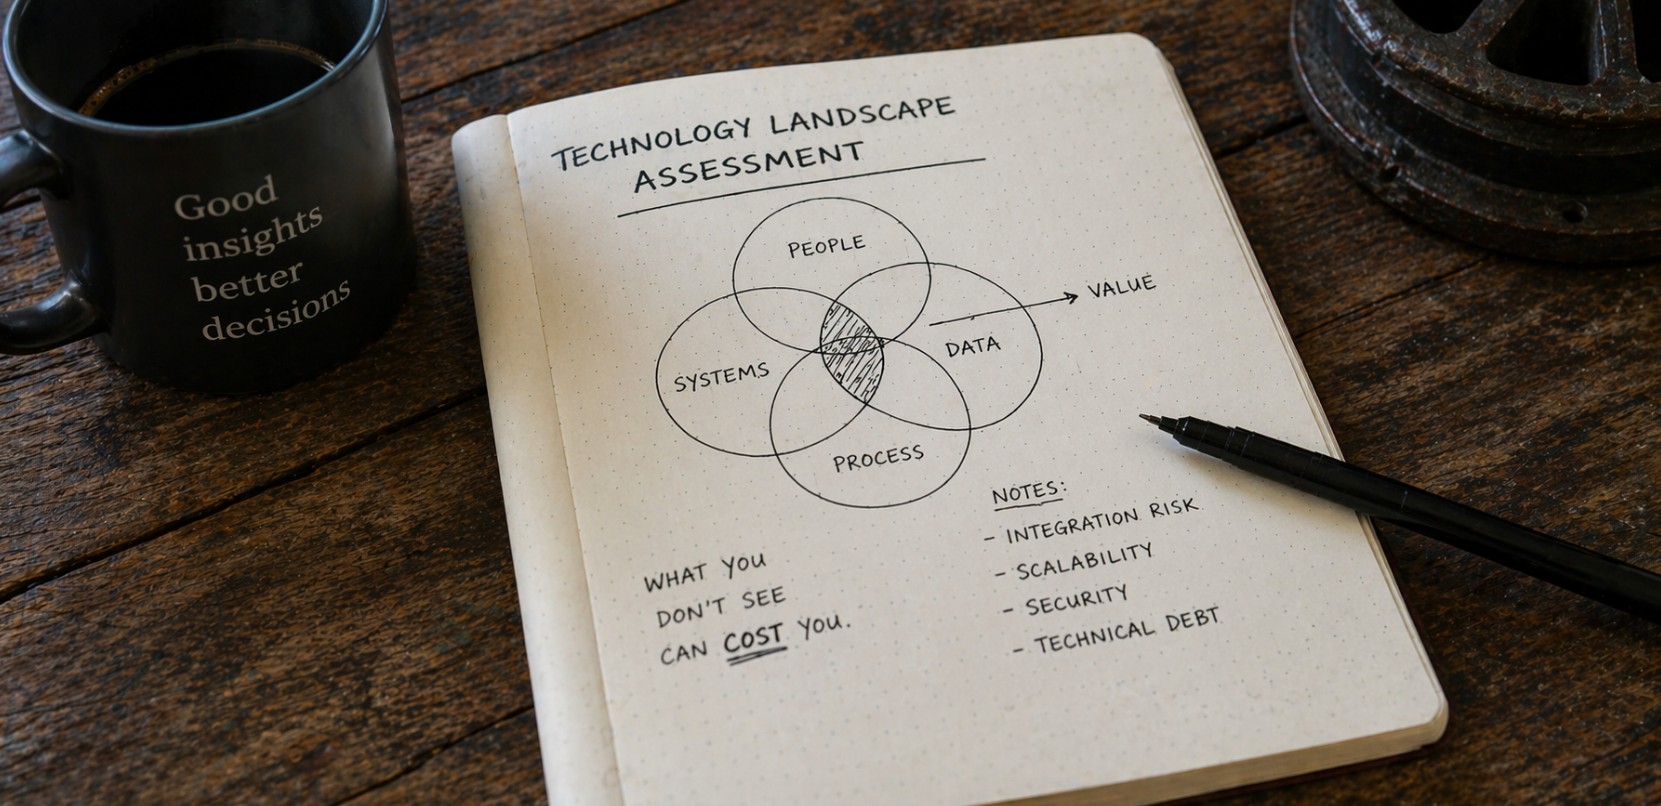 Good
insights
better
decisions
TECHNOLOGY LANDSCAPE
ASSESSMENT
PEOPLE
VALUE
DATA
SYSTEMS
PROCESS
NOTES:
- INTEGRATION RISK
- SCALABILITY
- SECURITY
- TECHNICAL DEBT
WHAT YOU
DON'T SEE
CAN COST YOU.